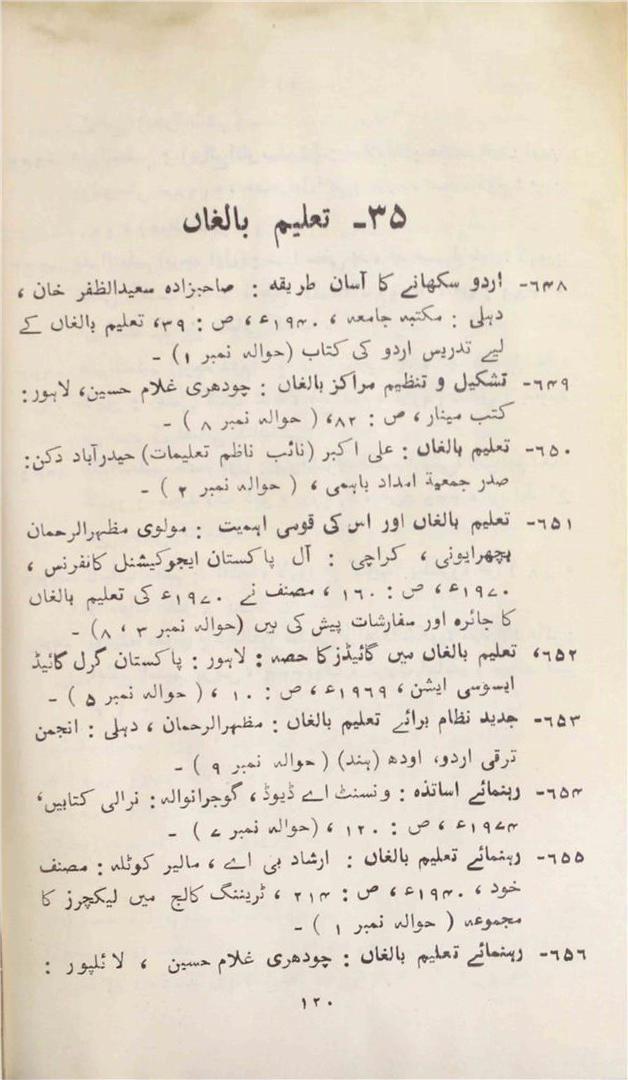 ۳۵۔ تعلیم بالغاں
۶۴۸۔ اردو سکھانے کا آسان طریقہ : صاحبزادہ سعیدالظفر خان ،
دہلی : مکتبہ جامعہ ، ۱۹۴۰ء ، ص : ۳۹، تعلیم بالغاں کے
لیے تدریس اردو کی کتاب (حوالہ نمبر ۱) ۔
۶۴۹۔ تشکیل و تنظیم مراکز بالغاں : چودھری غلام حسین، لاہور:
کتب مینار ، ص : ۸۲، ( حوالہ نمبر ۸ ) ۔
۶۵۰۔ تعلیم بالغاں : علی اکبر (نائب ناظم تعلیمات) حیدرآباد دکن:
صدر جمعیة امداد باہمی ، ( حوالہ نمبر ۲ ) ۔
۶۵۱۔ تعلیم بالغاں اور اس کی قومی اہمیت : مولوی مظہرالرحمان
بچھرایونی ، کراچی : آل پاکستان ایجوکیشنل کانفرنس ،
۱۹۷۰ء ، ص : ۱۶۰ ، مصنف نے ۱۹۷۰ء کی تعلیم بالغاں
کا جائزہ اور سفارشات پیش کی ہیں (حوالہ نمبر ۳ ، ۸) ۔
۶۵۲، تعلیم بالغاں میں گائیڈز کا حصہ : لاہور : پاکستان گرل گائیڈ
ایسوسی ایشن ، ۱۹۶۹ء ، ص : ۱۰ ، ( حوالہ نمبر ۵ ) ۔
۶۵۳۔ جدید نظام برائے تعلیم بالغاں : مظہرالرحمان ، دہلی : انجمن
ترقی اردو، اودھ (ہند) ( حوالہ نمبر ۹ ) ۔
۶۵۴۔ رہنمائے اساتذہ : ونسنٹ اے ڈیوڈ ، گوجرانوالہ : نرالی کتابیں،
۱۹۷۴ء ، ص : ۱۲۰ ، (حوالہ نمبر ۷ ) ۔
۶۵۵۔ رہنمائے تعلیم بالغاں : ارشاد بی اے ، مالیر کوٹلہ : مصنف
خود ، ۱۹۴۰ء ، ص : ۲۱۴ ، ٹریننگ کالج میں لیکچرز کا
مجموعہ ( حوالہ نمبر ۱ ) ۔
۶۵۶۔ رہنمائے تعلیم بالغاں : چودھری غلام حسین ، لائلپور :
۱۲۰